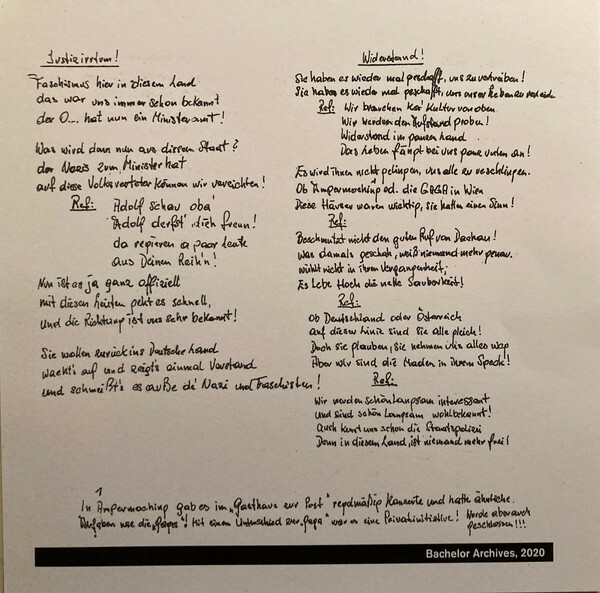 Justizirrtum!
Faschismus hier in diesem Land
das war uns immer schon bekannt
der O... hat nun ein Ministeramt!
Was wird denn nun aus diesem Staat?
der Nazis zum Minister hat
auf diese Volksverteter können wir verzichten!
Ref: Adolf schau oba'
Adolf derfst' dich freun!
da regieren a paar Leute
aus Deinen Reih'n!
Nun ist es ja ganz offiziell
mit diesen Leuten geht es schnell,
und die Richtung ist uns sehr bekannt!
Sie wollen zurück ins Deutsche Land
wacht's auf und zeigt's einmal Verstand
und schmeißt's es auße de' Nazi und Faschisten!
Widerstand!
Sie haben es wieder mal geschafft, uns zu vertreiben!
Sie haben es wieder mal geschafft, uns unser Leben zu
Ref: Wir brauchen Ka' Kultur von oben
Wir werden den Aufstand proben!
Widerstand im ganzen Land
Das Leben fängt bei uns ganz unten an!
Es wird ihnen nicht gelingen, uns alle zu verschlingen.
Ob Ampermoching od. die GAGA in Wien
Diese Häuser waren wichtig, sie hatten einen Sinn!
Ref:
Beschmutzt nicht den guten Ruf von Dachau!
Was damals geschah, weiß niemand mehr genau.
wühlt nicht in ihrer Vergangenheit,
Es Lebe Hoch die nette Sauberkeit!
Ref:
Ob Deutschland oder Österreich
auf dieser Linie sind Sie alle gleich!
Doch sie glauben, sie nehmen uns alles weg
Aber wir sind die Maden in ihrem Speck!
Ref:
Wir werden schön langsam interessant
und sind schön langsam wohlbekannt!
Auch kennt uns schon die Staatspolizei
Denn in diesem Land, ist niemand mehr frei!
In Ampermoching gab es im "Gasthaus zur Post" regelmäßig Konzerte und hatte ähnliche
Aufgaben wie die "Gaga"! Mit einem Unterschied zur "Gaga" war es eine Privatinitiative! Wurde aber auch
geschlossen!!!
Bachelor Archives, 2020